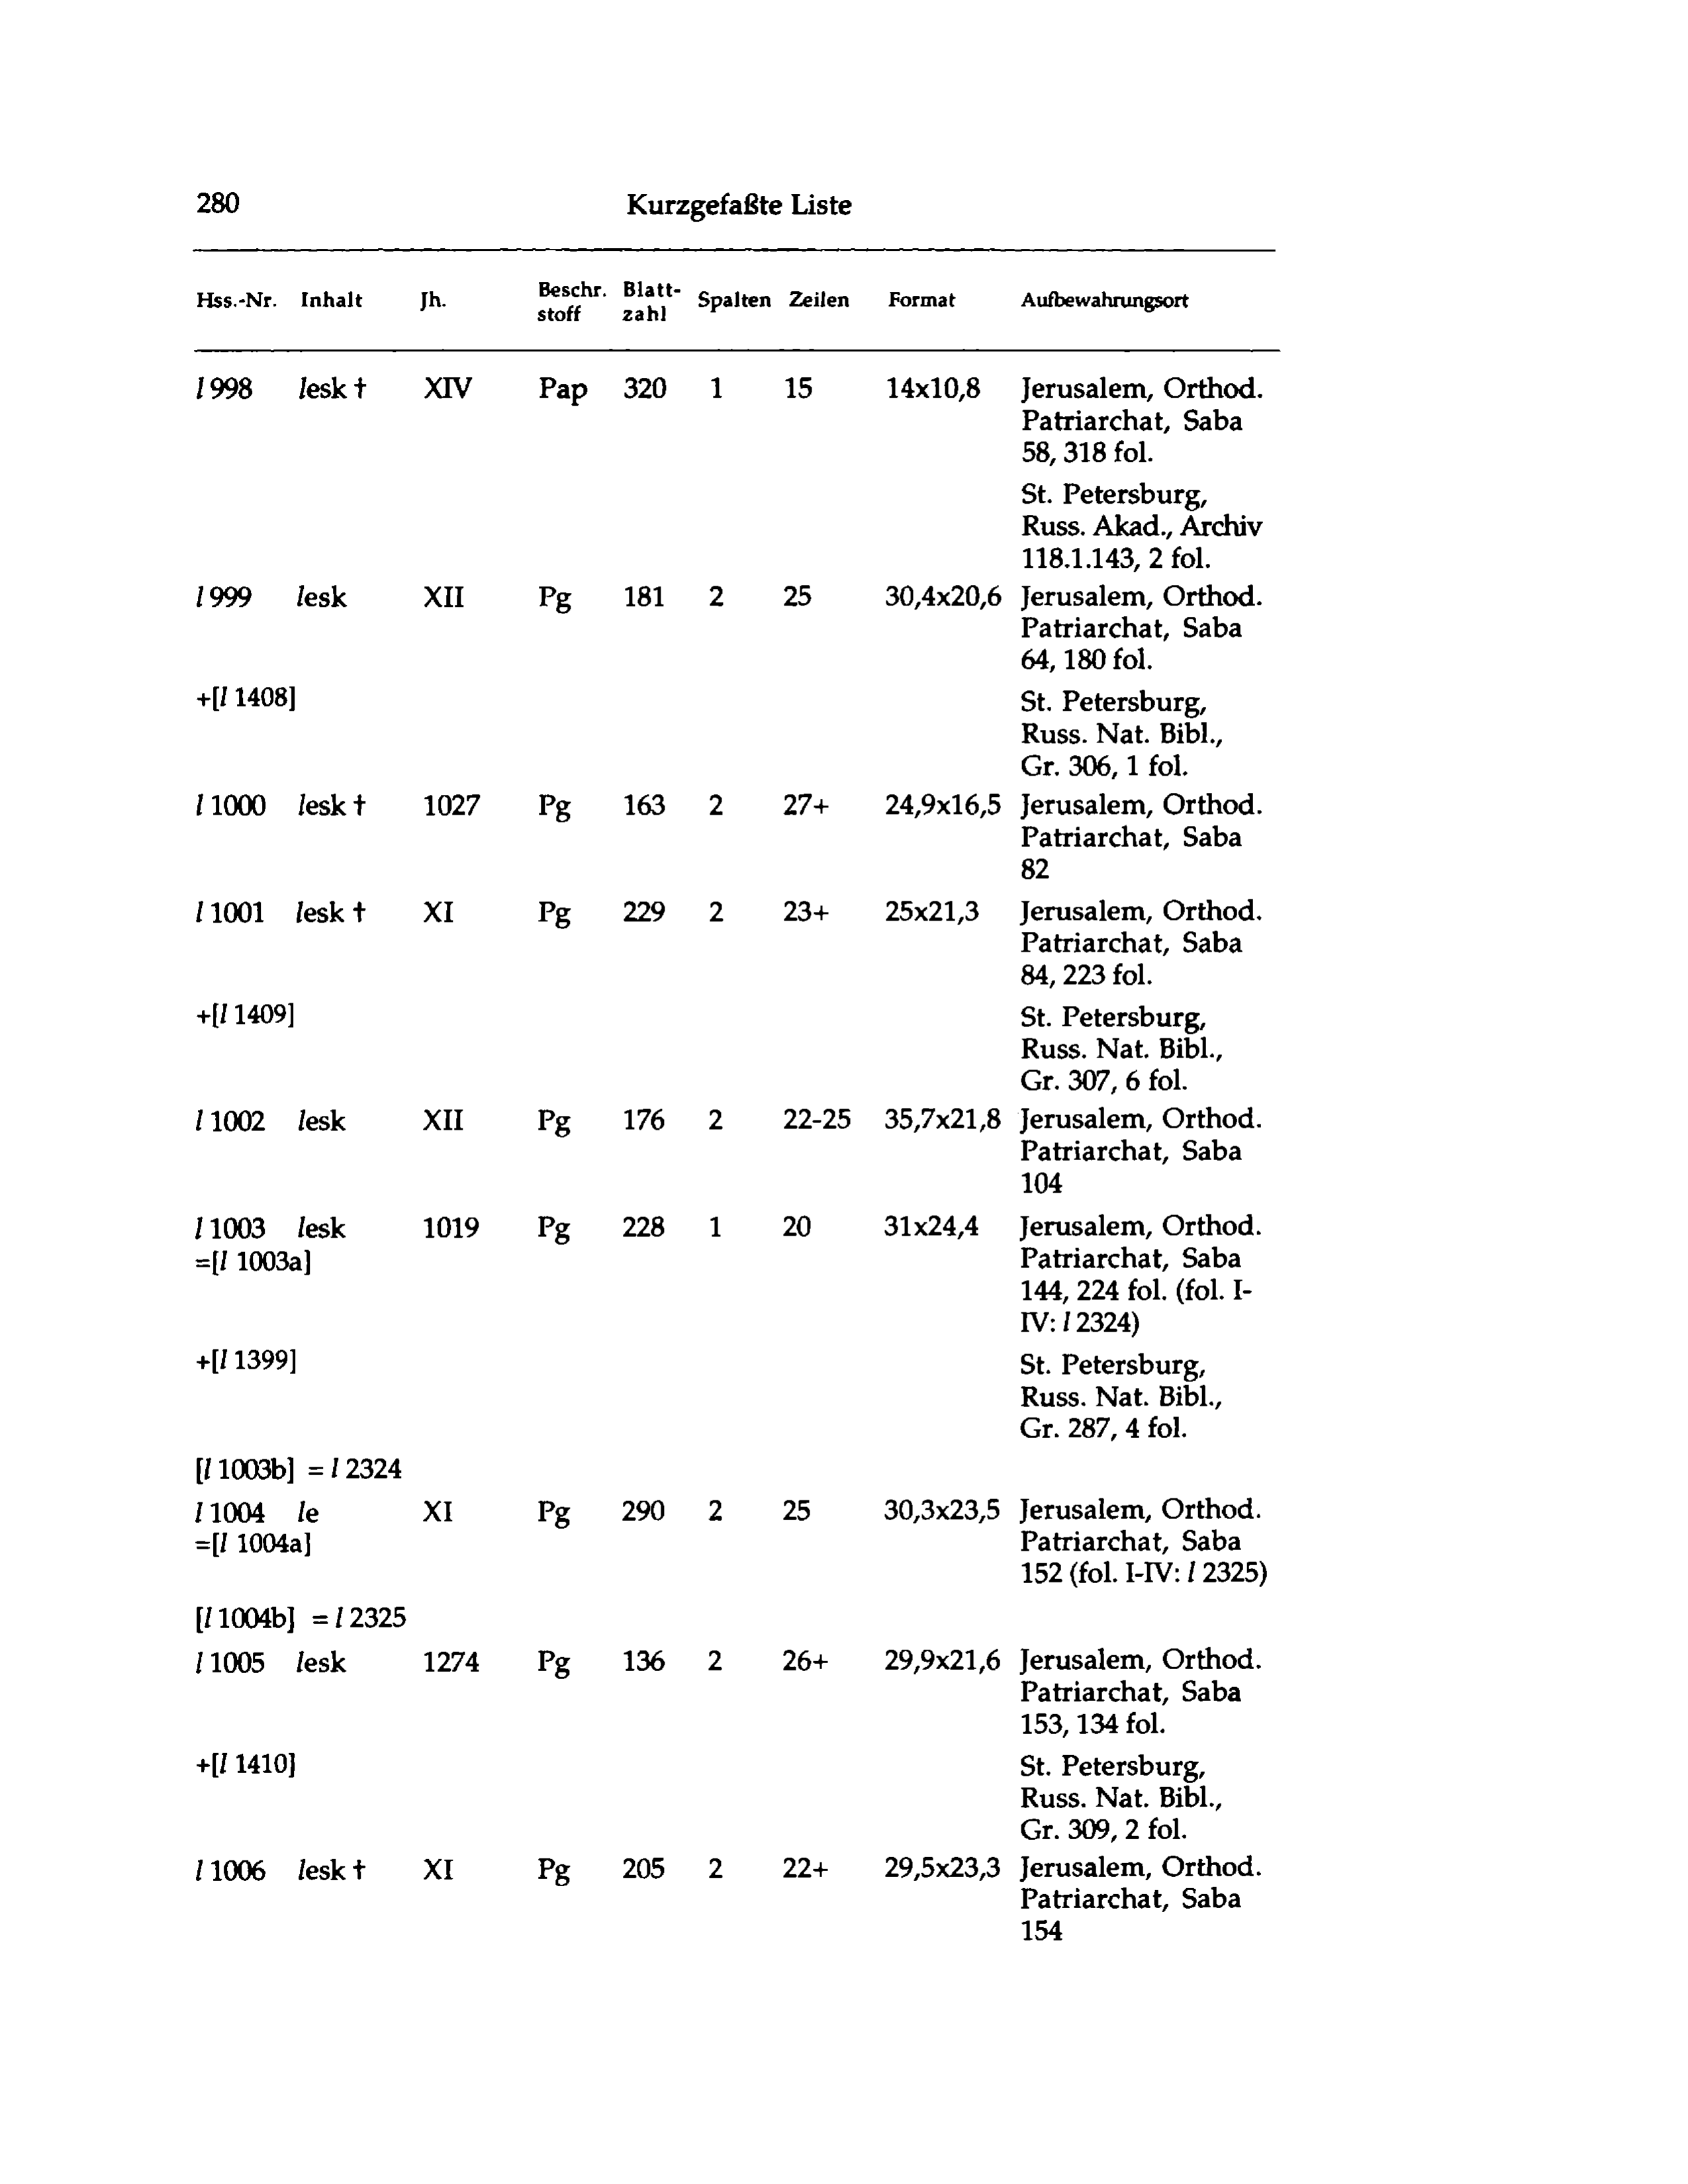 280 Kurzgefaßte Liste
Hss.-Nr. Inhalt Jh. Beschr. stoff Blatt- zahl Spalten Zeilen Format Aufbewahrungsort
l 998 lesk † XIV Pap 320 1 15 14x10,8 Jerusalem, Orthod.
Patriarchat, Saba
58, 318 fol.
St. Petersburg,
Russ. Akad., Archiv
118.1.143, 2 fol.
l 999 lesk XII Pg 181 2 25 30,4x20,6 Jerusalem, Orthod.
Patriarchat, Saba
64, 180 fol.
+[l 1408] St. Petersburg,
Russ. Nat. Bibl.,
Gr. 306, 1 fol.
l 1000 lesk † 1027 Pg 163 2 27+ 24,9x16,5 Jerusalem, Orthod.
Patriarchat, Saba
82
l 1001 lesk † XI Pg 229 2 23+ 25x21,3 Jerusalem, Orthod.
Patriarchat, Saba
84, 223 fol.
+[l 1409] St. Petersburg,
Russ. Nat. Bibl.,
Gr. 307, 6 fol.
l 1002 lesk XII Pg 176 2 22-25 35,7x21,8 Jerusalem, Orthod.
Patriarchat, Saba
104
l 1003 lesk 1019 Pg 228 1 20 31x24,4 Jerusalem, Orthod.
=[l 1003a] Patriarchat, Saba
144, 224 fol. (fol. I-
IV: l 2324)
+[l 1399] St. Petersburg,
Russ. Nat. Bibl.,
Gr. 287, 4 fol.
[l 1003b] = l 2324
l 1004 le XI Pg 290 2 25 30,3x23,5 Jerusalem, Orthod.
=[l 1004a] Patriarchat, Saba
152 (fol. I-IV: l 2325)
[l 1004b] = l 2325
l 1005 lesk 1274 Pg 136 2 26+ 29,9x21,6 Jerusalem, Orthod.
Patriarchat, Saba
153, 134 fol.
+[l 1410] St. Petersburg,
Russ. Nat. Bibl.,
Gr. 309, 2 fol.
l 1006 lesk † XI Pg 205 2 22+ 29,5x23,3 Jerusalem, Orthod.
Patriarchat, Saba
154